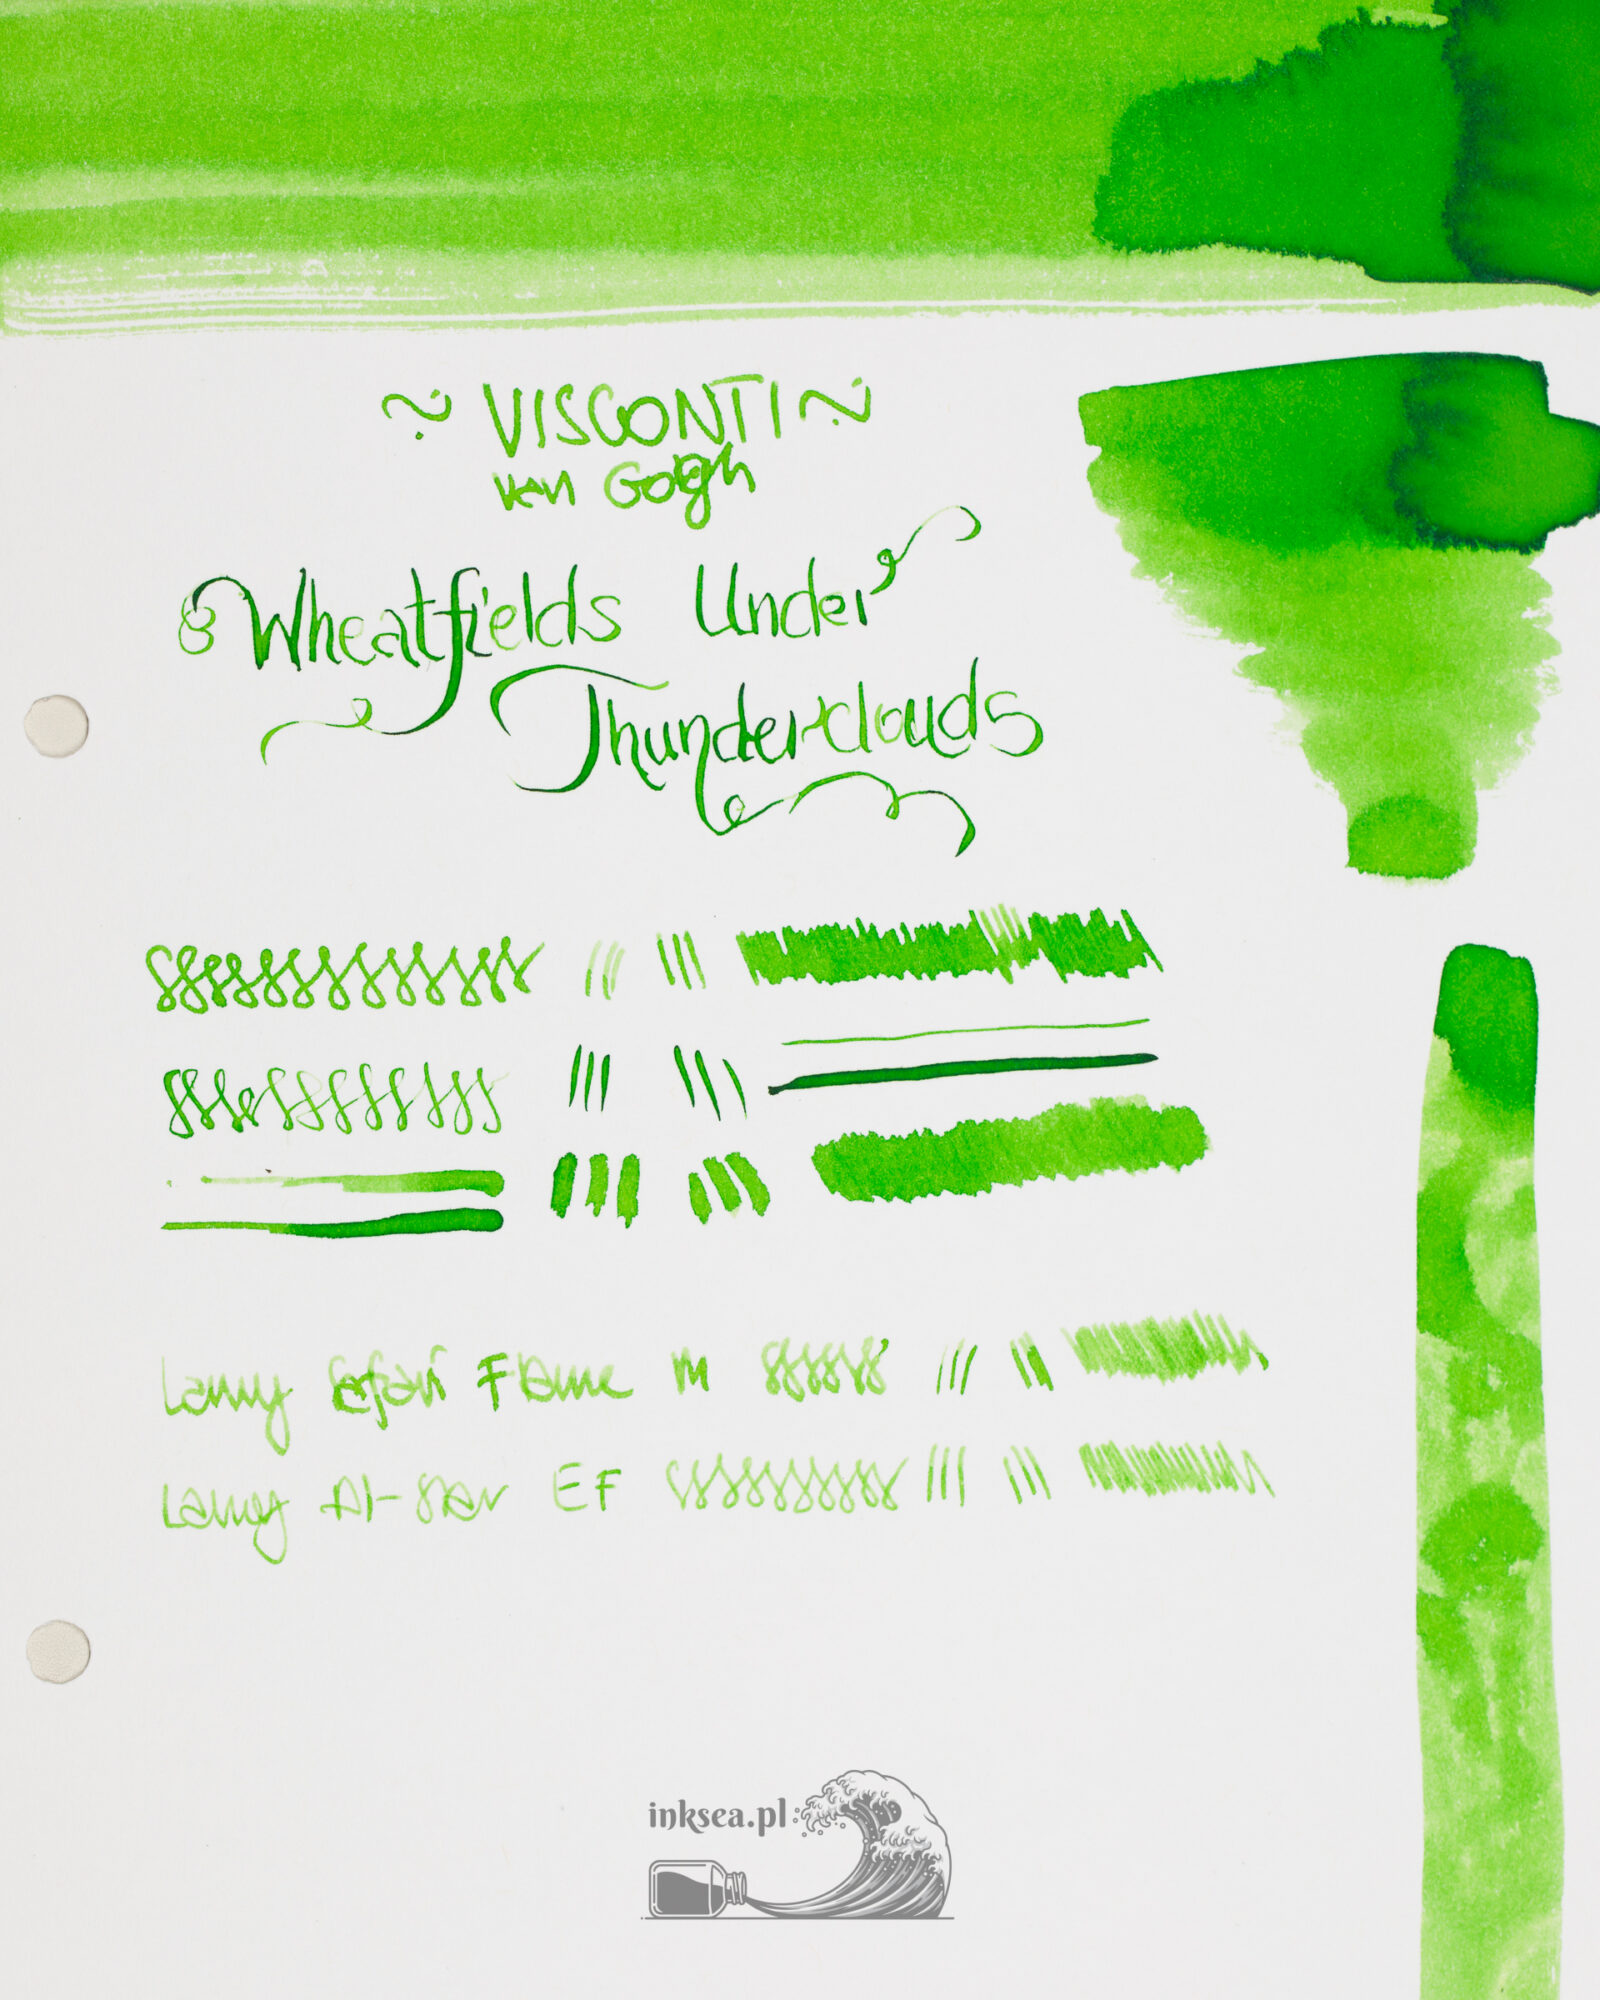 ~ VISCONTI ~
van Gogh
Wheatfields Under
Thunderclouds
Lamy Safari Flame M
Lamy Al-Star EF
inksea.pl